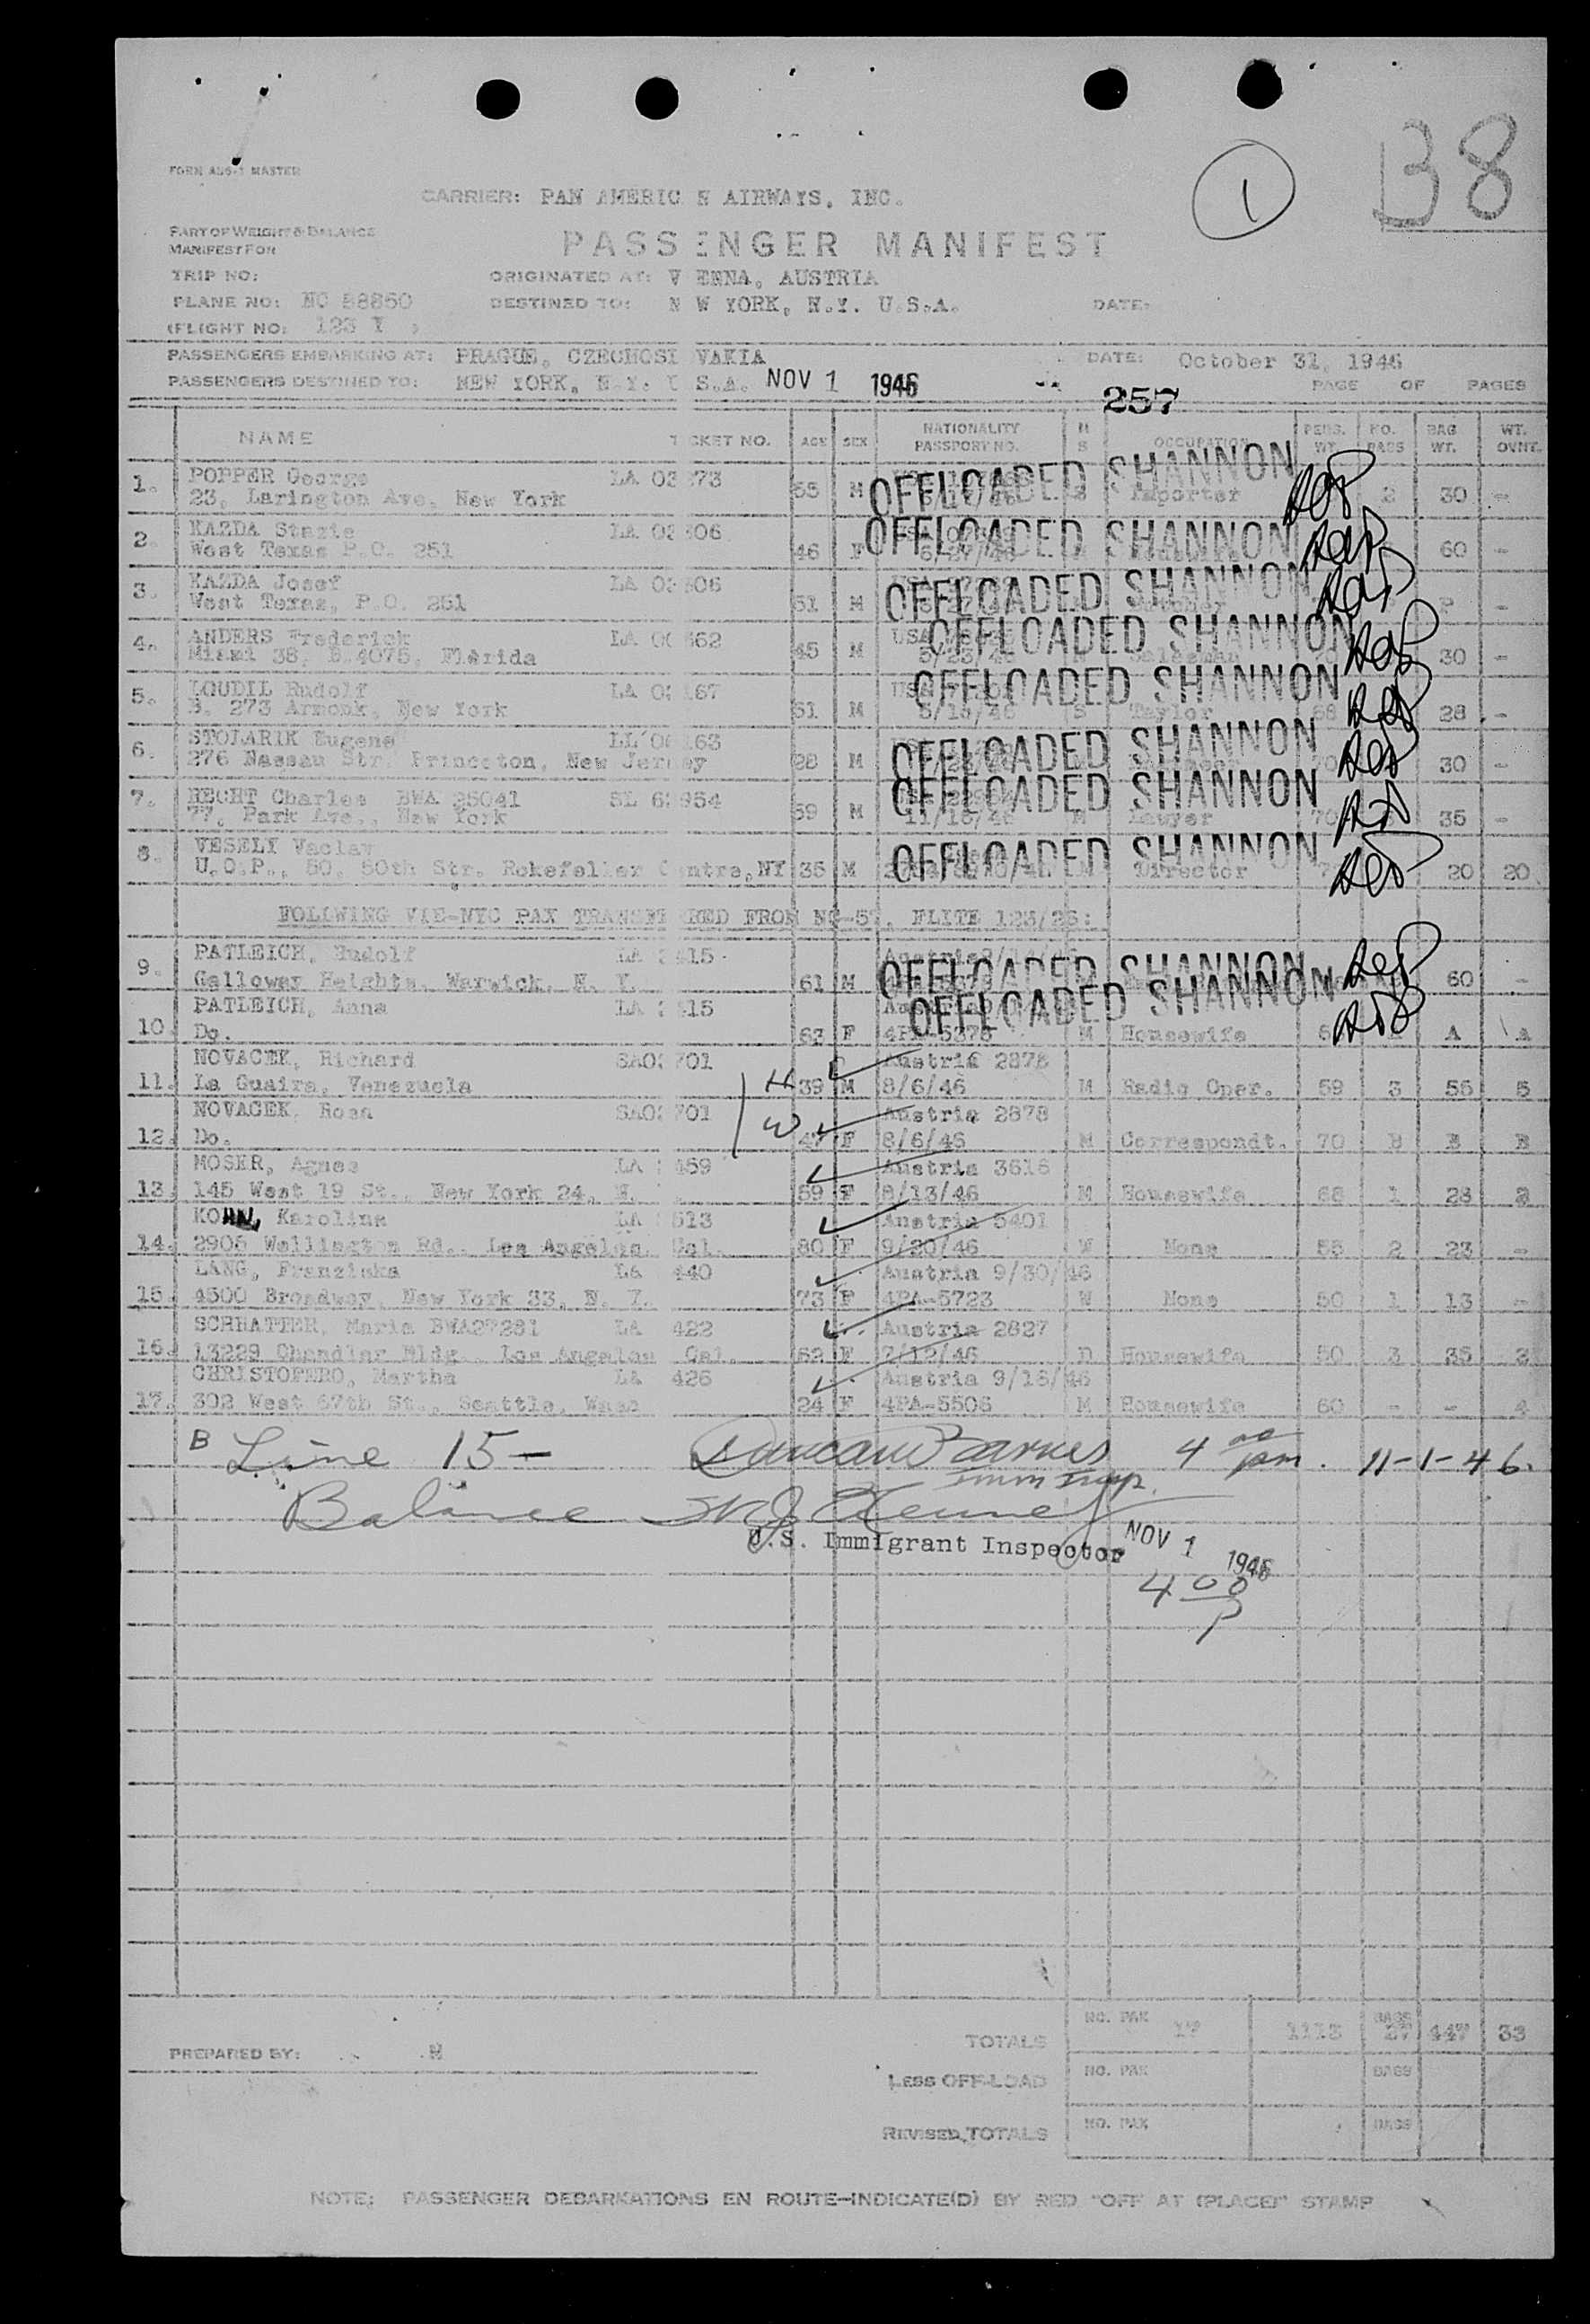 1
38
FORM
MASTER
CARRIER: PAN AMERIC N AIRWAYS, INC.
PART OF WEIGHT & BALANCE
MANIFEST FOR
PASSENGER MANIFEST
TRIP NO:
ORIGINATED AT: V ENNA, AUSTRIA
PLANE NO: NC 88860
DESTINED TO: N W YORK, N.Y. U.S.A.
DATE:
(FLIGHT NO: 123
PASSENGERS EMBARKING AT: PRAGUE, CZECHOSL VAKIA
DATE: October 31, 1946
PASSENGERS DESTINED TO: NEW YORK, N.Y. U S.A. NOV 1 1946
257
PAGE OF PAGES
NAME T CKET NO. AGE SEX NATIONALITY PASSPORT NO. M S OCCUPATION PERS. WT. NO. BAGS BAG WT. WT. OVNT.
1. POPPER George LA 02 73
23, Larington Ave, New York 55 M Importer 2 30 -
OFFLOADED SHANNON
2. KAZDA Stazie LA 02 606
West Texas P.O. 251 46 F 60 -
OFFLOADED SHANNON
3. KAZDA Josef LA 02 606
West Texas, P.O. 251 51 M -
OFFLOADED SHANNON
4. ANDERS Frederick LA 00 462 USA
Miami 38, B.4075, Flerida 45 M 5/23/46 Salesman 30 -
OFFLOADED SHANNON
5. LOUDIL Rudolf LA 167
B. 273 Armonk, New York 51 M 5/15/46 S Taylor 68 28 -
OFFLOADED SHANNON
6. STOLARIK Eugene 163
276 Nassau Str. Princeton, New Jer ey 28 M 70 30 -
OFFLOADED SHANNON
7. HECHT Charles BWA 25041 954
77, Park Ave., New York 59 M 11/15/46 M Lawyer 70 35 -
OFFLOADED SHANNON
8. VESELY Vaclav
U.O.P., 50, 50th Str. Rokefeller C ntre,NY 35 M Director 20 20
OFFLOADED SHANNON
FOLLWING VIE-NYC PAX TRANSFE RED FROM FLITE 123/25:
9. PATLEICH, Rudolf LA 415
Galloway Heights, Warwick, N. Y. 61 M 60 -
OFFLOADED SHANNON
10. PATLEICH, Anna LA 415
Do. 63 F 4PA-5378 M Housewife A A
OFFLOADED SHANNON
11. NOVACEK, Richard 701 Austria 2878
La Guaira, Venezuela H 39 M 8/6/46 M Radio Oper. 59 3 55 5
12. NOVACEK, Rosa 701 Austria 2878
Do. W 47 F 8/6/46 M Correspondt. 70 B B B
13. MOSER, Agnes LA 459 Austria 3616
145 West 19 St., New York 24, N. 59 F 8/13/46 M Housewife 68 1 28 2
14. KOHN, Karoline LA 513 Austria 5401
2905 Wellington Rd., Los Angeles, Cal. 80 F 9/20/46 W None 55 2 23 -
15. LANG, Franziska LA 440 Austria 9/30/46
4500 Broadway, New York 33, N. Y. 73 F 4PA-5723 W None 50 1 13 -
16. SCHHATTER, Maria BWA27281 LA 422 Austria 2827
13229 Chandler Bldg., Los Angeles Cal. 52 F 7/12/46 D Housewife 50 3 35 2
17. CHRISTOFERO, Martha LA 426 Austria 9/18/46
302 West 67th St., Seattle, Wash 24 F 4PA-5506 M Housewife 60 - - 4
B Line 15 - Duncan Barnes 4 00 pm. 11-1-46.
Imm Insp.
Balance
U.S. Immigrant Inspector NOV 1 1946
4 00 P
TOTALS NO. PAX 17 1113 BAGS 27 447 33
PREPARED BY:
LESS OFF-LOAD NO. PAX BAGS
REVISED TOTALS NO. PAX BAGS
NOTE: PASSENGER DEBARKATIONS EN ROUTE—INDICATE(D) BY RED "OFF AT (PLACE)" STAMP